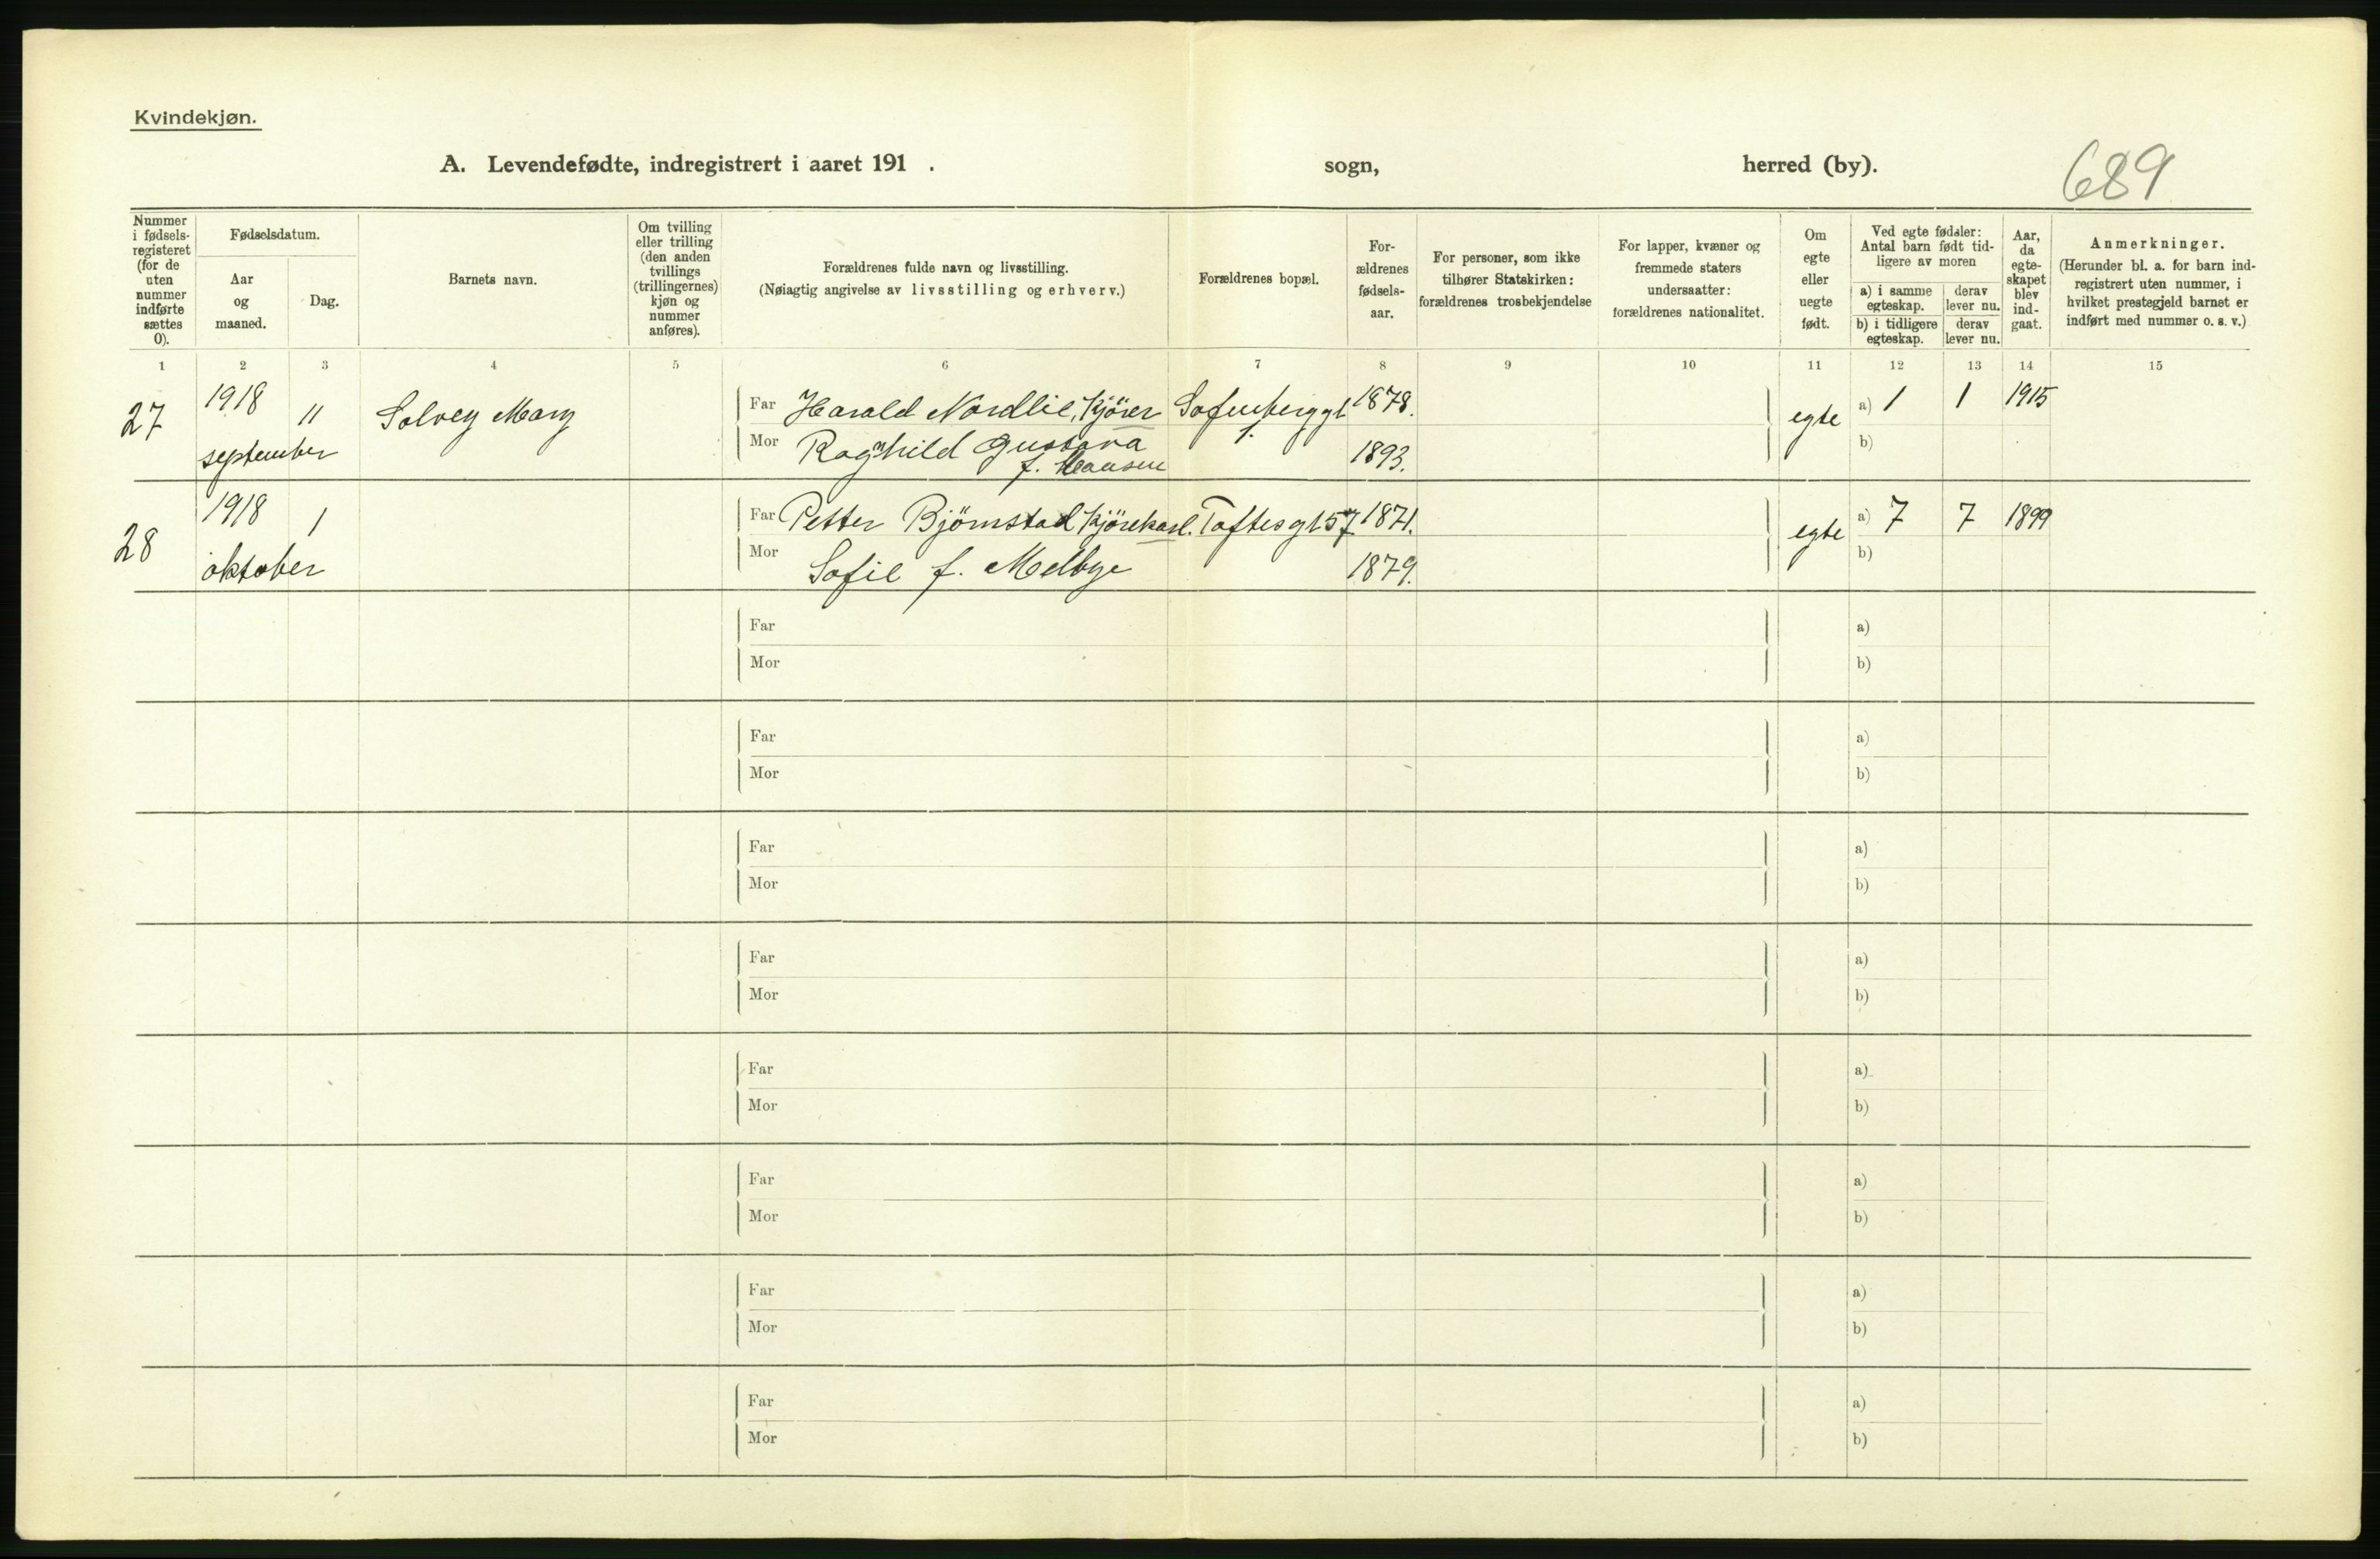 Kvindekjøn.
A. Levendefødte, indregistrert i aaret 191 . sogn, herred (by). 689
Nummer i fødsels-registeret (for de uten nummer indførte sættes 0).
Fødselsdatum.
Aar og maaned.
Dag.
Barnets navn.
Om tvilling eller trilling (den anden tvillings (trillingernes) kjøn og nummer anføres).
Forældrenes fulde navn og livsstilling.
(Nøiagtig angivelse av livsstilling og erhverv.)
Forældrenes bopæl.
For-ældrenes fødsels-aar.
For personer, som ikke tilhører Statskirken: forældrenes trosbekjendelse
For lapper, kvæner og fremmede staters undersaatter: forældrenes nationalitet.
Om egte eller uegte født.
Ved egte fødsler: Antal barn født tid-ligere av moren
a) i samme egteskap.
derav lever nu.
b) i tidligere egteskap.
derav lever nu.
Aar, da egte-skapet blev ind-gaat.
Anmerkninger.
(Herunder bl. a. for barn ind-registrert uten nummer, i hvilket prestegjeld barnet er indført med nummer o. s. v.)
1 2 3 4 5 6 7 8 9 10 11 12 13 14 15
27 1918 september 11 Solvey Mary
Far Harald Nordlie, Kjörer Sofienberggt 1. 1878. egte a) 1 1 1915
Mor Raghild Gustava f. Hansen 1893. b)
28 1918 oktober 1
Far Petter Björnstad Kjörekarl. Toftesgt 57 1871. egte a) 7 7 1899
Mor Sofie f. Melbye 1879. b)
Far a)
Mor b)
Far a)
Mor b)
Far a)
Mor b)
Far a)
Mor b)
Far a)
Mor b)
Far a)
Mor b)
Far a)
Mor b)
Far a)
Mor b)